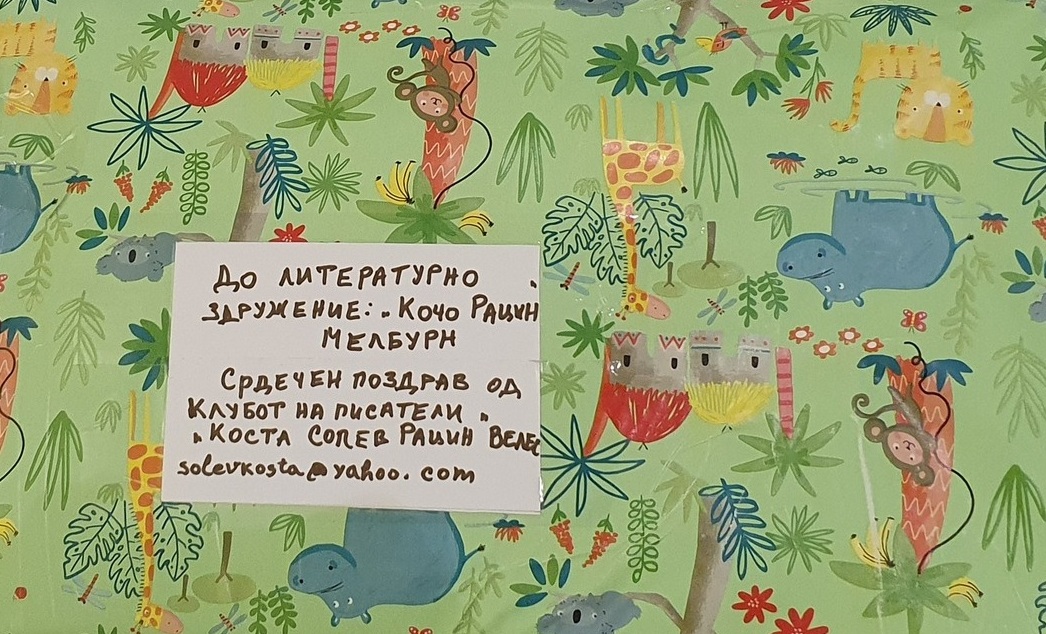 ДО ЛИТЕРАТУРНО
ЗДРУЖЕНИЕ: „КОЧО РАЦИН
МЕЛБУРН
СРДЕЧЕН ПОЗДРАВ ОД
КЛУБОТ НА ПИСАТЕЛИ "
„КОСТА СОЛЕВ РАЦИН" ВЕЛЕС
solevkosta@yahoo.com